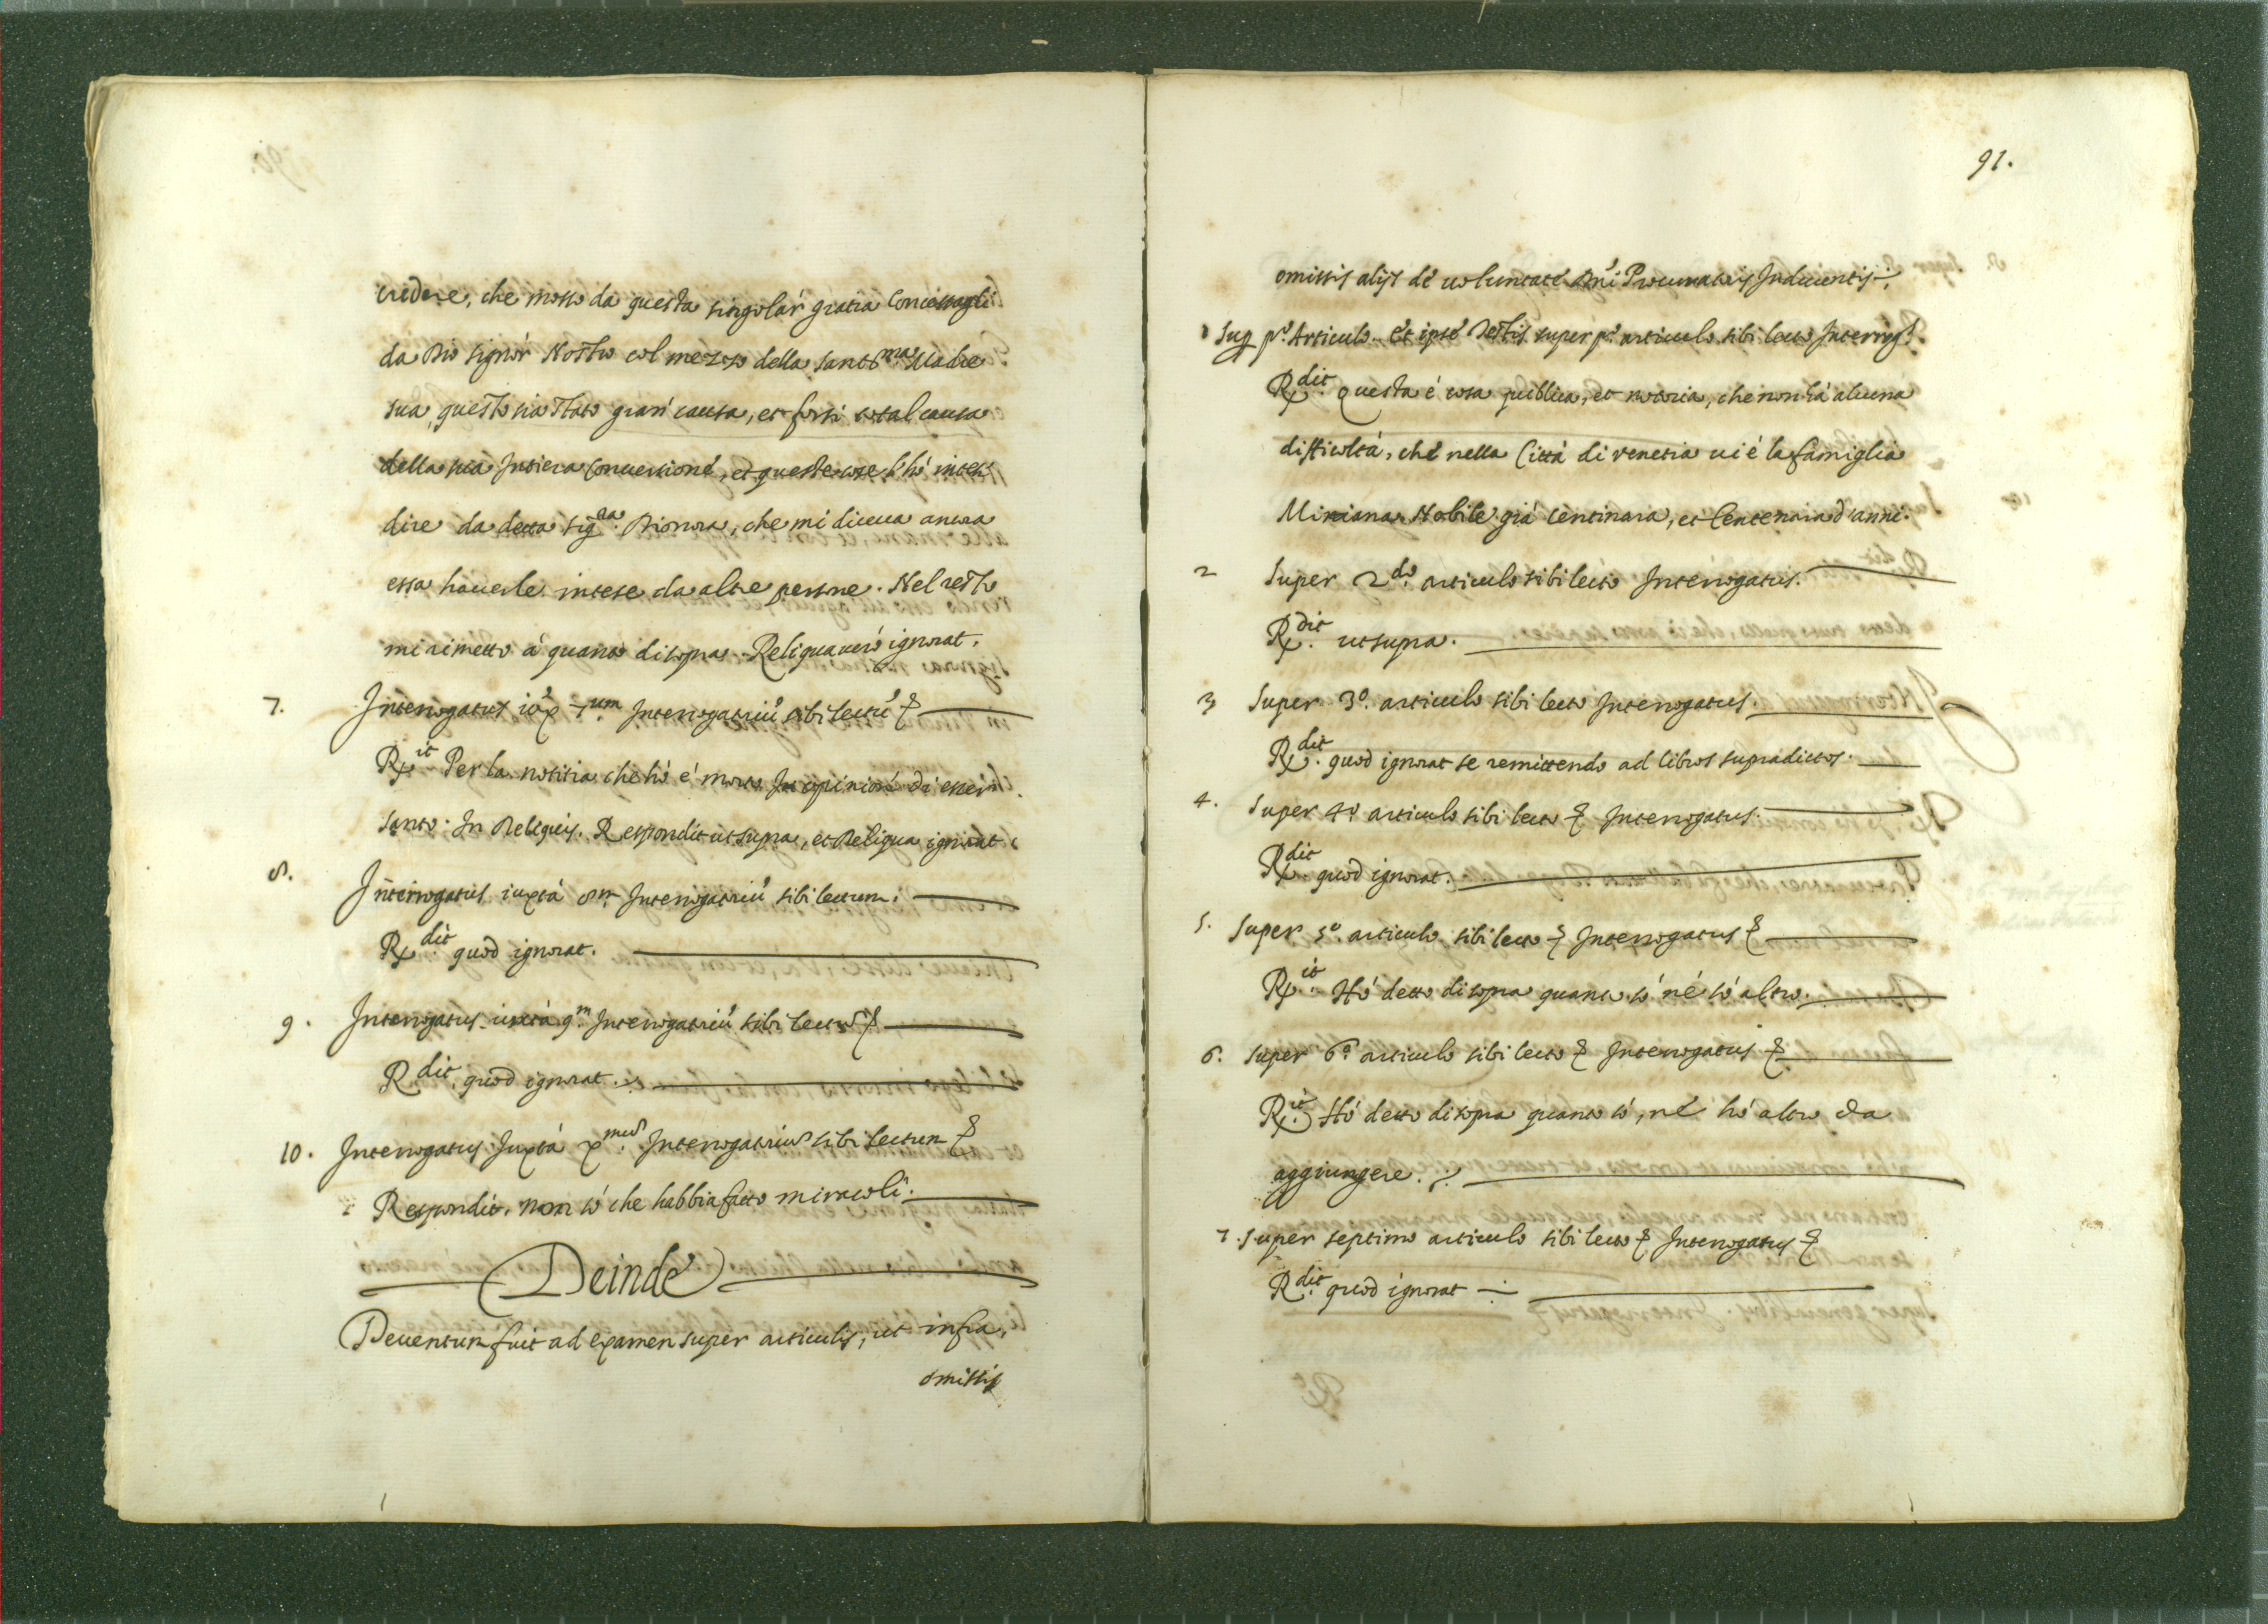 credere, che mosso da questa singolar gratia Concessagli
da Dio Signor Nostro col mezzo della Santma Madre
sua, questo sia stato gran causa, et forsi total causa
della sua Intiera Conuersione, et queste cose l'hò intese
dire da detta Sigra Dionora, che mi diceua ancora
essa hauerle intese da altre persone. Nel resto
mi rimetto à quanto di sopra. Reliqua uerò ignorat.
7. Interrogatus iux 7um Interrogatriũ sibi lectũ &
Rx it Per la notitia che hò è morto In opinione di esser
Santo. In Reliquis. Respondit ut supra, et Reliqua ignorat
8. Interrogatus iuxtà 8m Interrogatriũ sibi lectum.
Rx dit quod ignorat.
9. Interrogatus iuxtà 9m Interrogatriũ sibi lectũ &
R dit quod ignorat.
10. Interrogatus Juxtà Xmũ Interrogatriũ sibi lectum &
Respondit. non sò che habbia fatto miracoli.
Deinde
Deuentum fuit ad examen super articulis, ut infra,
omissis
91.
omissis alijs de uoluntate Dni Procuratoris Inducentis.
1 Sup po Articulo. Et ipse Testis super po articulo sibi lecto Interrogs.
Rx dit Questa è cosa publica, et notoria, che non hà alcuna
difficoltà, che nella Città di Venetia ui è la famiglia
Miniana Nobile già Centinara, et Centenaia d'anni.
2 Super 2do articulo sibi lecto Interrogatus.
Rx dit ut supra.
3 Super 3o. articulo sibi lecto Interrogatus.
Rx dit quod ignorat se remittendo ad libros supradictos.
4. Super 4o articulo sibi lecto & Interrogatus.
Rx dit quod ignorat.
5. Super 5o. articulo sibi lecto & Interrogatus &
Rx it Hò detto di sopra quanto sò nè sò altro.
6. Super 6o. articulo sibi lecto & Interrogatus &
Rx it Hò detto di sopra quanto sò, nè hò altro da
aggiungere.
7. Super septimo articulo sibi lecto & Interrogatus &
R dit quod ignorat